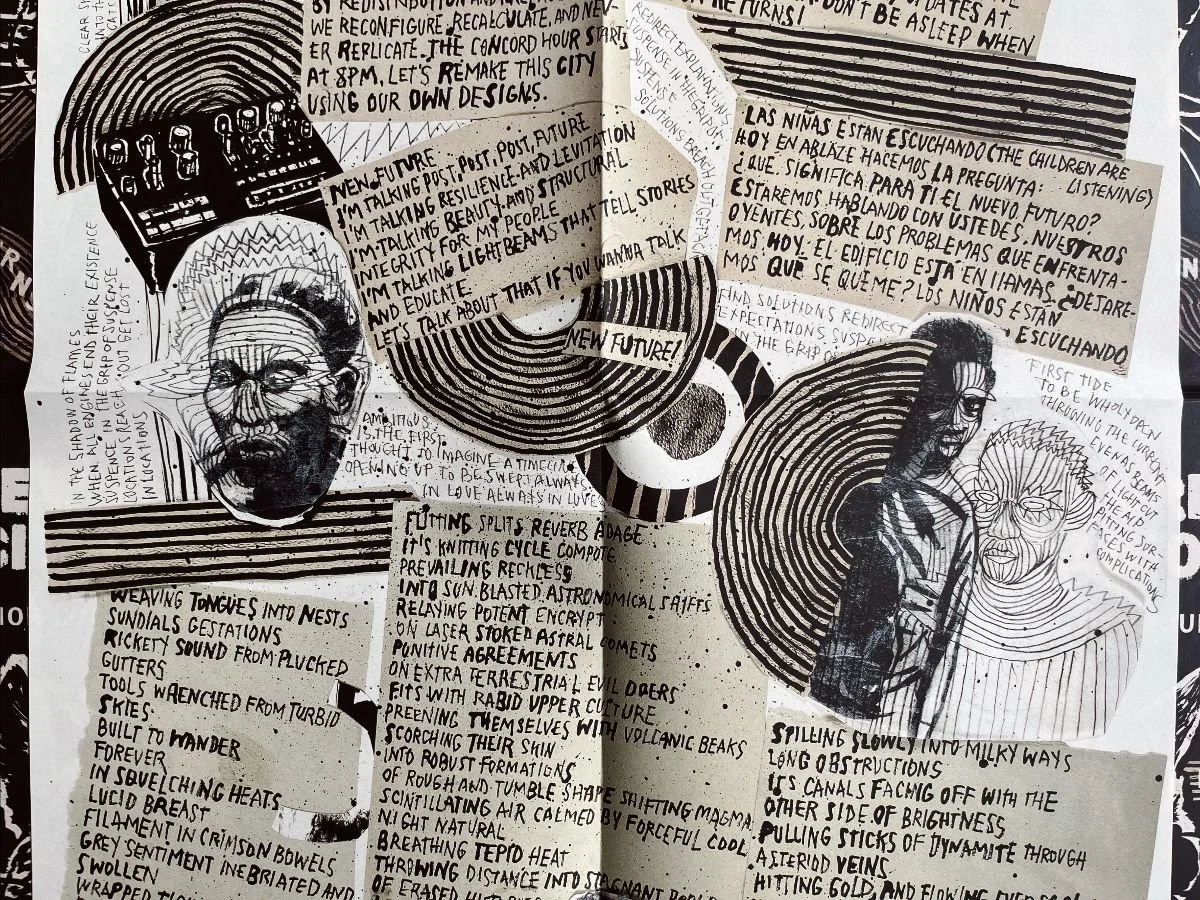 BY REDISTRIBUTION AND
WE RECONFIGURE, RECALCULATE, AND NEV-
ER REPLICATE. THE CONCORD HOUR STARTS
AT 8PM. LET'S REMAKE THIS CITY
USING OUR OWN DESIGNS.
UPDATES AT
DON'T BE ASLEEP WHEN
RETURNS!
CLEAR
INTO
REDIRECT EXPLANATIONS
SUSPENSE IN THE GRIP OF
SUSPENSE
SOLUTIONS BREACH OUT
NEW FUTURE
I'M TALKING POST, POST, POST, FUTURE
I'M TALKING RESILIENCE AND LEVITATION
I'M TALKING BEAUTY AND STRUCTURAL
INTEGRITY FOR MY PEOPLE
I'M TALKING LIGHTBEAMS THAT TELL STORIES
AND EDUCATE.
LET'S TALK ABOUT THAT IF YOU WANNA TALK
NEW FUTURE!
LAS NIÑAS ESTAN ESCUCHANDO (THE CHILDREN ARE
LISTENING)
HOY EN ABLAZE HACEMOS LA PREGUNTA:
¿QUE SIGNIFICA PARA TI EL NUEVO FUTURO?
ESTAREMOS HABLANDO CON USTEDES, NUESTROS
OYENTES, SOBRE LOS PROBLEMAS QUE ENFRENTA-
MOS HOY. EL EDIFICIO ESTA EN LLAMAS, ¿DEJARE-
MOS QUE SE QUEME? LOS NIÑOS ESTÁN
ESCUCHANDO
FIND SOLUTIONS REDIRECT
EXPECTATIONS SUSPENSE
IN THE GRIP OF
IN THE SHADOW OF FLAMES
WHEN ALL ENGINES END THEIR EXISTENCE
SUSPENCE IN THE GRIP OF SUSPENSE
LOCATIONS REACH OUT GET LOST
IN LOCATIONS
AMBITIOUS
IS THE FIRST
THOUGHT TO IMAGINE A TIMELINE
OPENING UP TO BE SWEPT ALWAYS
IN LOVE ALWAYS IN LOVE
FIRST TIDE
TO BE WHOLY OPEN
THROWING THE CURRENT
EVEN AS BEAMS
OF LIGHT OUT
THE AID
PITTING SUR-
FACES WITH
COMPLICATIONS
WEAVING TONGUES INTO NESTS
SUNDIALS GESTATIONS
RICKETY SOUND FROM PLUCKED
GUTTERS
TOOLS WRENCHED FROM TURBID
SKIES
BUILT TO WANDER
FOREVER
IN SQUELCHING HEATS
LUCID BREAST
FILAMENT IN CRIMSON BOWELS
GREY SENTIMENT INEBRIATED AND
SWOLLEN
WRAPPED
FUTTING SPLITS REVERB ADAGE
IT'S KNITTING CYCLE COMPOTE
PREVAILING RECKLESS
INTO SUN BLASTED ASTRONOMICAL SHIFTS
RELAYING POTENT ENCRYPT
ON LASER STOKED ASTRAL COMETS
PUNITIVE AGREEMENTS
ON EXTRA TERRESTRIAL EVIL DOERS
FITS WITH RABID UPPER CULTURE
PREENING THEMSELVES WITH VOLCANIC BEAKS
SCORCHING THEIR SKIN
INTO ROBUST FORMATIONS
OF ROUGH AND TUMBLE SHAPE SHIFTING MAGMA
SCINTILLATING AIR CALMED BY FORCEFUL COOL
NIGHT NATURAL
BREATHING TEPID HEAT
THROWING DISTANCE INTO STAGNANT
OF ERASED
SPILLING SLOWLY INTO MILKY WAYS
LONG OBSTRUCTIONS
IT'S CANALS FACING OFF WITH THE
OTHER SIDE OF BRIGHTNESS
PULLING STICKS OF DYNAMITE THROUGH
ASTERIOD VEINS
HITTING GOLD, AND FLOWING